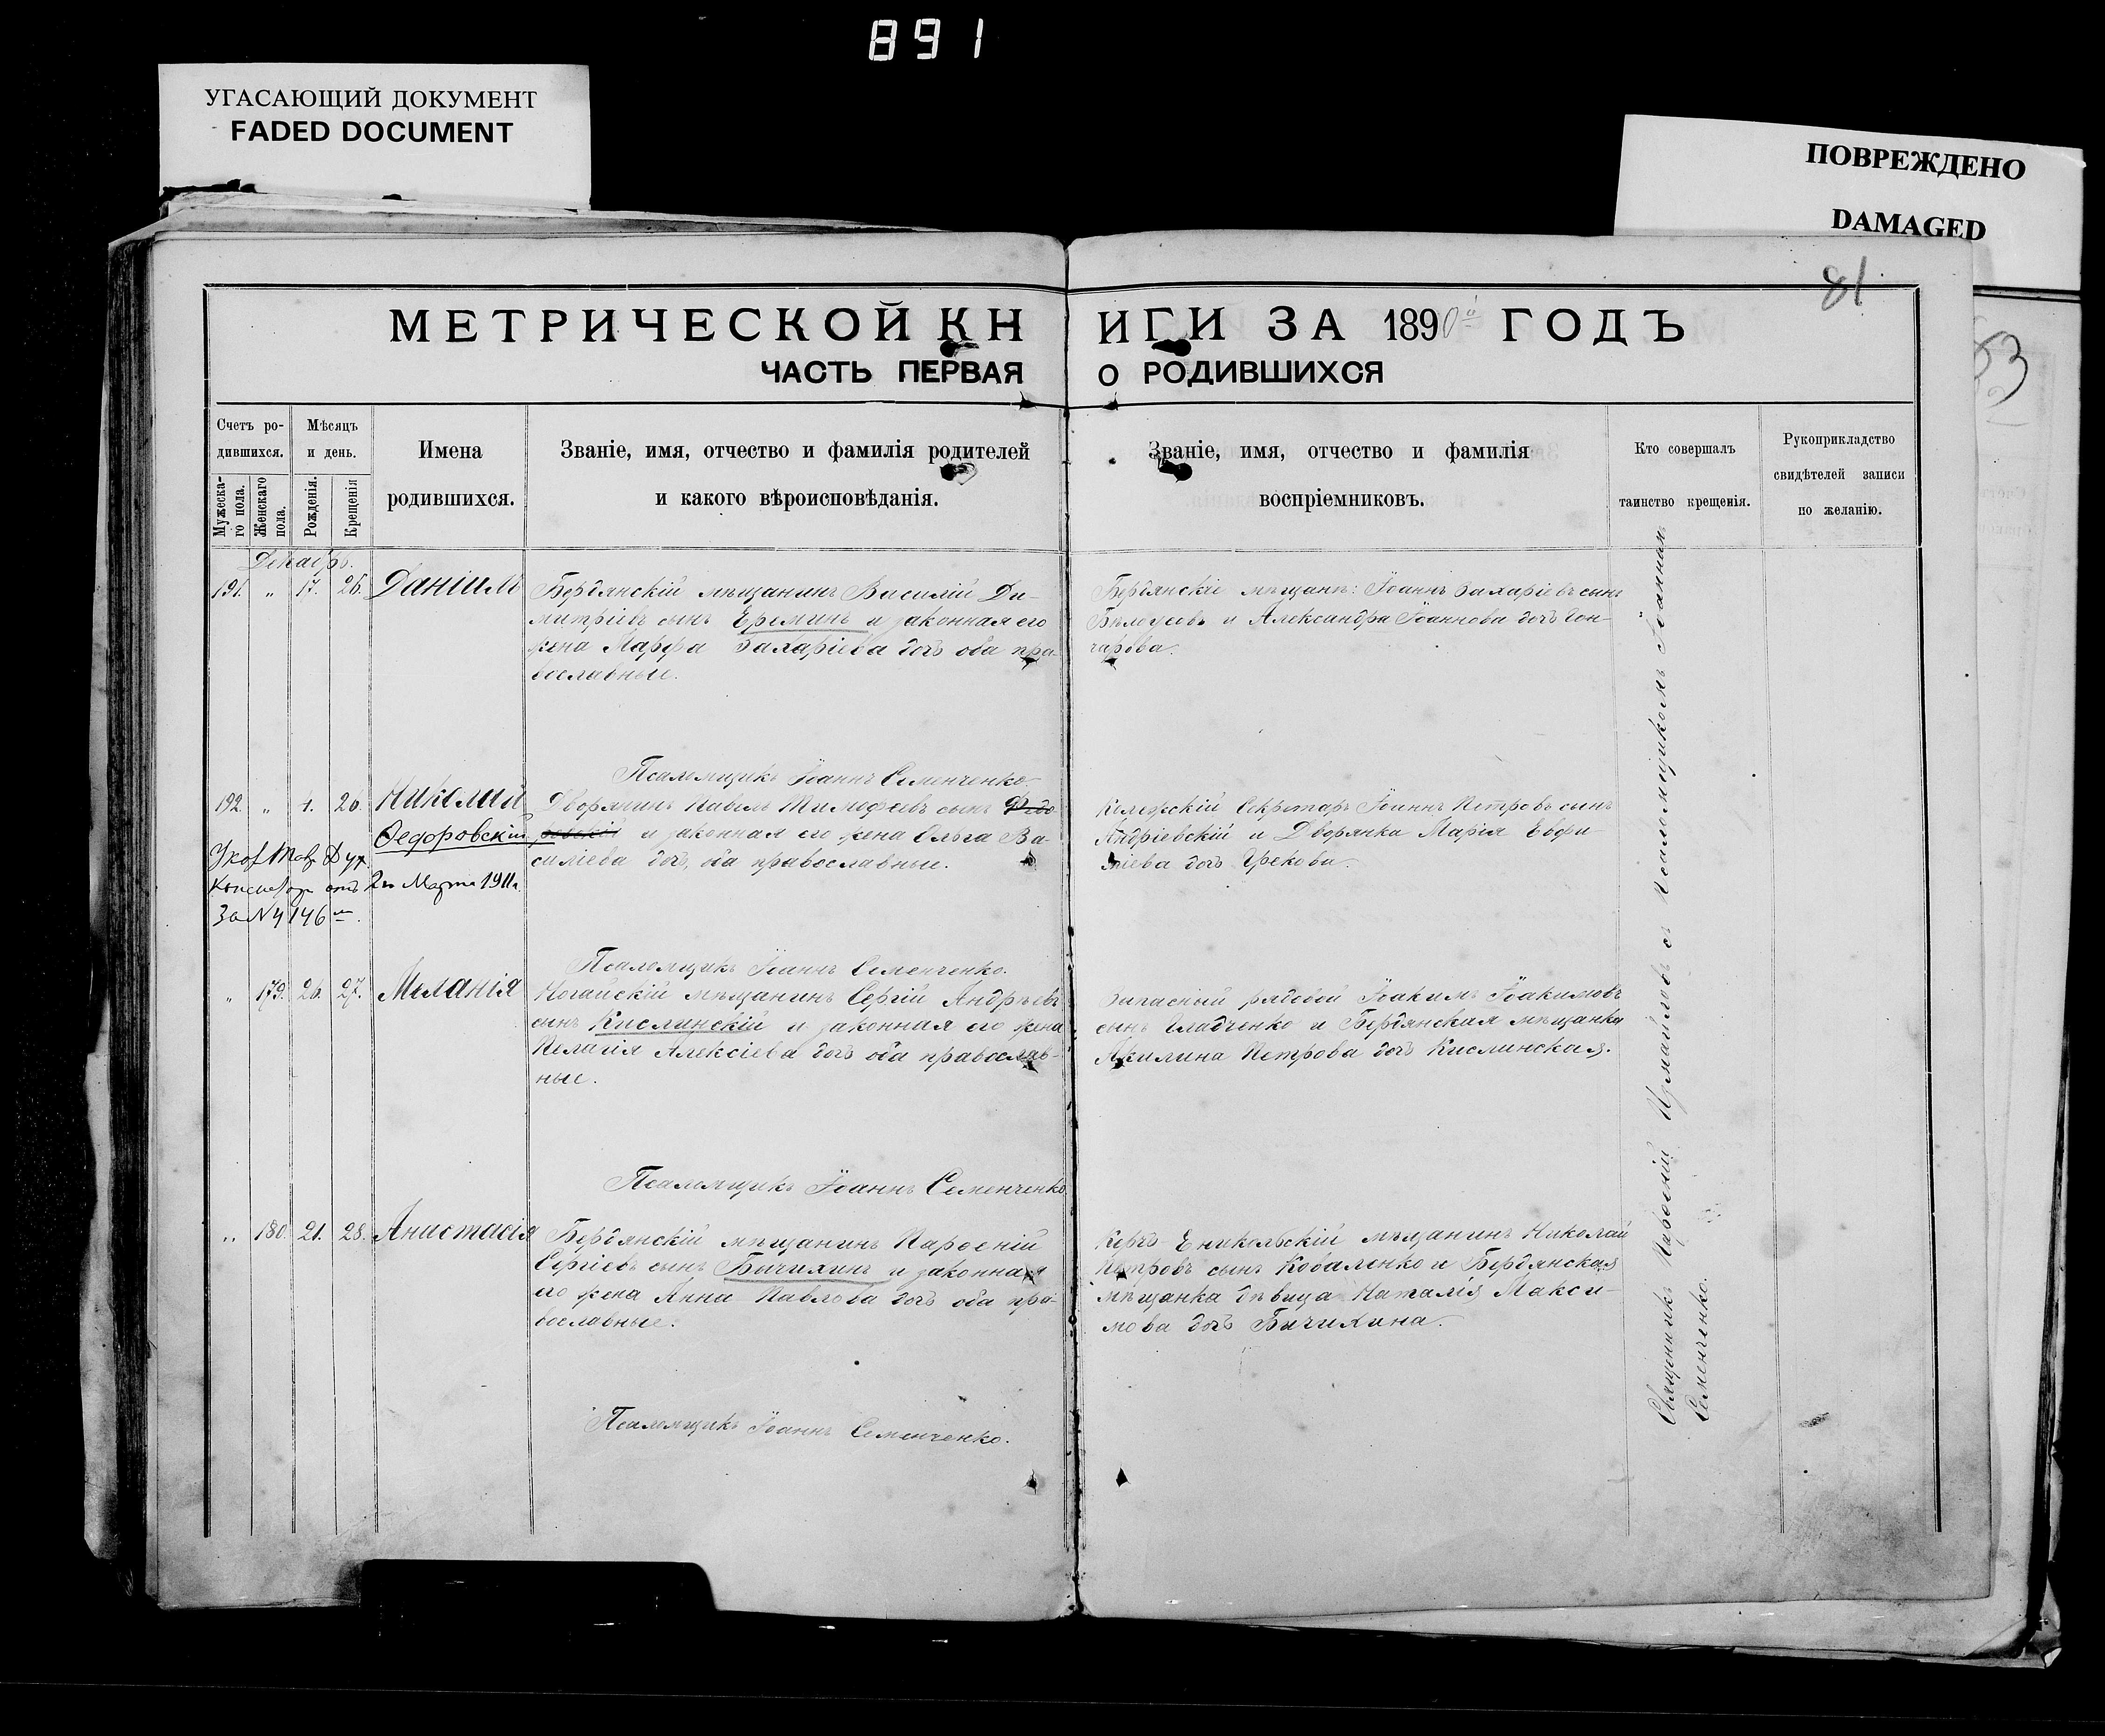 891
УГАСАЮЩИЙ ДОКУМЕНТ
FADED DOCUMENT
ПОВРЕЖДЕНО
DAMAGED
81
53
МЕТРИЧЕСКОЙ КНИГИ ЗА 1890й ГОДЪ
ЧАСТЬ ПЕРВАЯ О РОДИВШИХСЯ
Счетъ ро-
дившихся.
Мужеска-
го пола.
Женскаго
пола.
Мѣсяцъ
и день.
Рожденія.
Крещенія
Имена
родившихся.
Званіе, имя, отчество и фамилія родителей
и какого вѣроисповѣданія.
Званіе, имя, отчество и фамилія
воспріемниковъ.
Кто совершалъ
таинство крещенія.
Рукоприкладство
свидѣтелей записи
по желанію.
Декабрь.
191. „ 17. 26. Даніилъ
Бердянскій мѣщанинъ Василій Ди-
митріевъ сынъ Ереминъ и законная его
жена Марфа Захаріева дочь оба пра-
вославные.
Бердянскіе мѣщане: Іоаннъ Захаріевъ сынъ
Бѣлоусовъ и Александра Іоаннова дочь Гон-
чарова.
Псаломщикъ Іоаннъ Семенченко
192. „ 4. 26. Николай
Ѳедоровскій
Указ Тав. Дух.
Консистор. отъ 2го Марта 1911г.
За № 4146м.
Дворянинъ Павелъ Тимофеевъ сынъ Ѳедо-
ровскій и законная его жена Ольга Ва-
силіева дочь, оба православные.
Колежскій Секретарь Іоаннъ Петровъ сынъ
Андріевскій и Дворянка Марія Евфи-
міева дочь Грекова.
Псаломщикъ Іоаннъ Семенченко.
„ 179. 26. 27. Меланія
Ногайскій мѣщанинъ Сергій Андрѣевъ
сынъ Кислинскій и законная его жена
Пелагія Алексіева дочь оба православ-
ные.
Запасный рядовой Іоакимъ Іоакимовъ
сынъ Гладченко и Бердянская мѣщанка
Акилина Петрова дочь Кислинская.
Псаломщикъ Іоаннъ Семенченко
„ 180. 21. 28. Анастасія
Бердянскій мѣщанинъ Парѳеній
Сергіевъ сынъ Бичихинъ и законная
его жена Анна Павлова дочь оба пра-
вославные.
Керчь-Еникольскій мѣщанинъ Николай
Петровъ сынъ Коваленко и Бердянская
мѣщанка дѣвица Наталія Макси-
мова дочь Бичихина.
Псаломщикъ Іоаннъ Семенченко.
Священникъ Парѳеній съ Псаломщикомъ Іоанномъ
Семенченко.